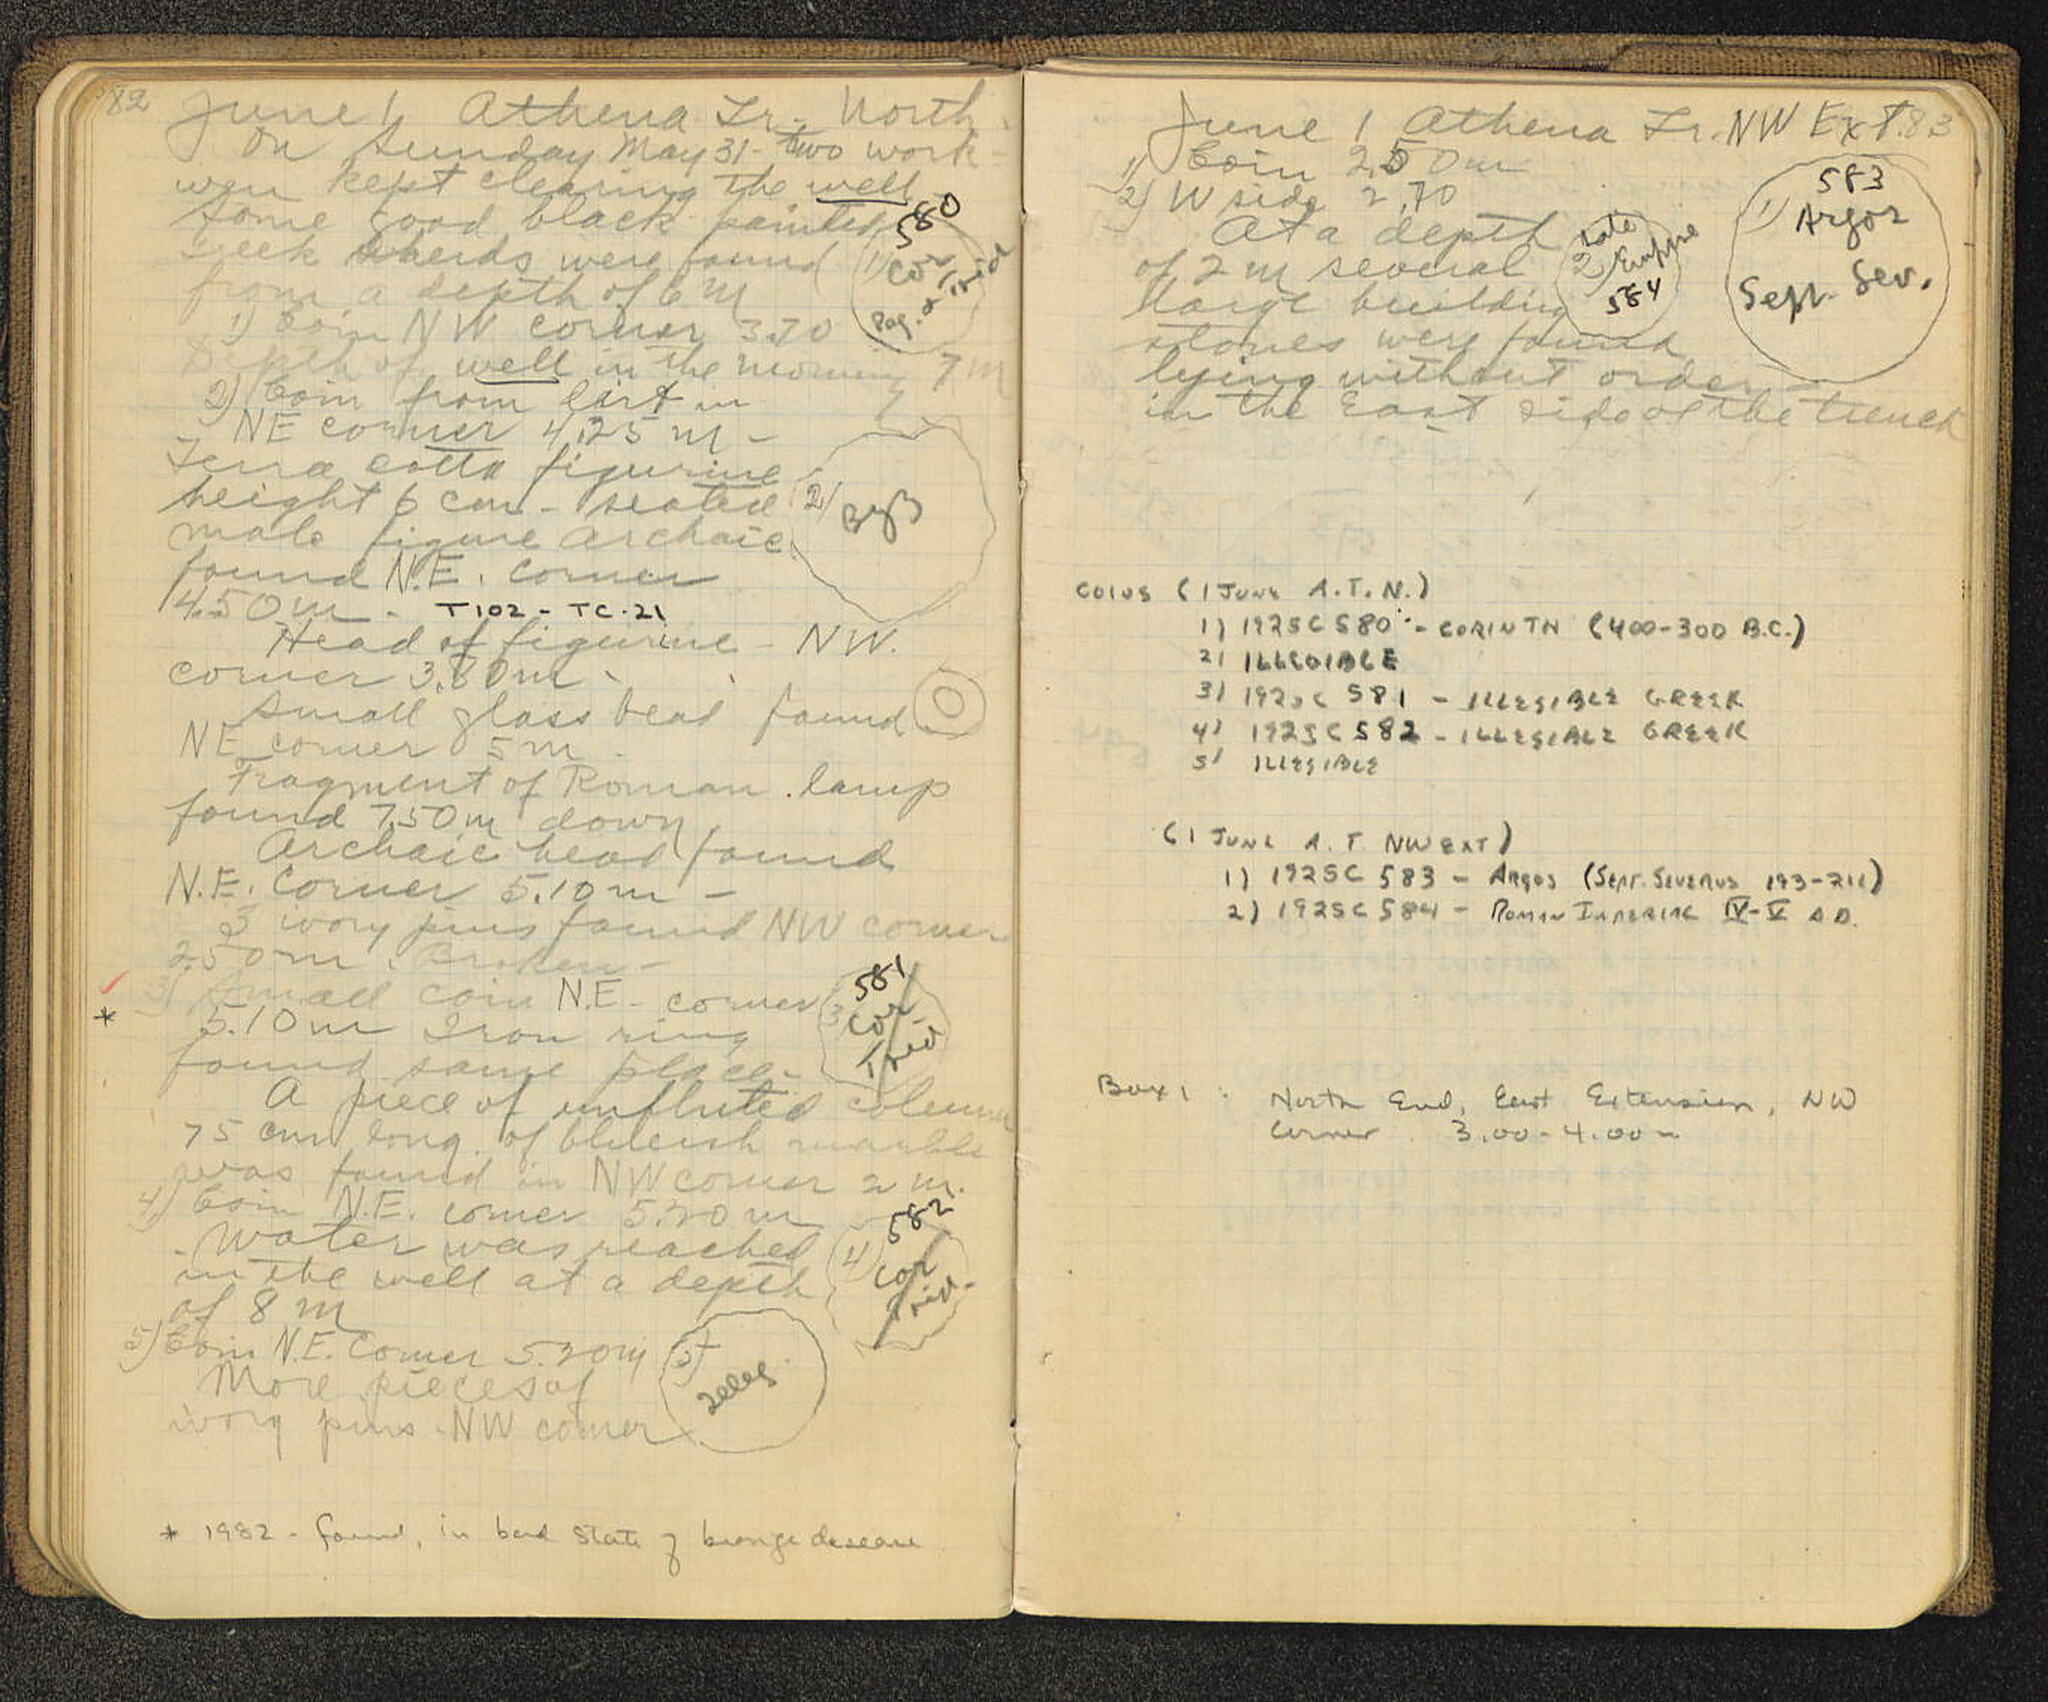 82
June 1 Athena Tr. North.
On Sunday May 31 - two work-
men kept clearing the well
Some good black painted
Greek sherds were found
from a depth of 6 M
1) Coin NW corner 3.70
1) 580
Cor
Peg. & Trid
Depth of well in the morning 7 m
2) Coin from dirt in
NE corner 4.25 m -
2) Byz
Terra cotta figurine
height 6 cm - seated
male figure archaic
found N.E. corner
4.50 m - T102 - TC·21
Head of figurine - NW.
corner 3.80 m -
Small glass bead found
NE corner 5 m -
Fragment of Roman lamp
found 7.50 m down
Archaic head found
N.E. corner 5.10 m -
3 ivory pins found NW corner
2.50 m. Broken -
3) Small coin N.E. corner
* 5.10 m Iron ring
found same place -
3) 581
Cor
Trid
A piece of unfluted column
75 cm long of blueish marble
was found in NW corner 2 m.
4) Coin N.E. corner 5.20 m
- Water was reached
in the well at a depth
of 8 m
4) 582
Cor
Trid.
5) Coin N.E. Corner 5.20 m
5) Illeg.
More pieces of
ivory pins - NW corner
* 1982 - found, in bad state of bronze disease
June 1 Athena Tr. NW Ext. 83
1) Coin 2.50 m
2) W side 2.70
1) 583
Argos
Sept. Sev.
2) Late
Empire
584
At a depth
of 2 m several
large building
stones were found
lying without order -
in the East side of the trench
COINS (1 JUNE A.T.N.)
1) 1925C 580 - CORINTH (400-300 B.C.)
2) ILLEGIBLE
3) 1925C 581 - ILLEGIBLE GREEK
4) 1925C 582 - ILLEGIBLE GREEK
5) ILLEGIBLE
(1 JUNE A.T. NW EXT)
1) 1925C 583 - ARGOS (SEPT. SEVERUS 193-211)
2) 1925C 584 - ROMAN IMPERIAL IV-V A.D.
Box 1 : North End, East Extension, NW
Corner 3.00 - 4.00 m